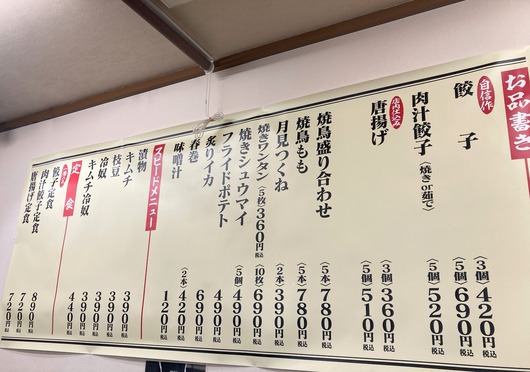 お品書き
自信作
餃子 〈3個〉420円税込
〈5個〉690円税込
肉汁餃子〈焼きor茹で〉 〈5個〉520円税込
店内仕込み
唐揚げ 〈3個〉360円税込
〈5個〉510円税込
焼鳥盛り合わせ 〈5本〉780円税込
焼鳥もも 〈5本〉780円税込
月見つくね 〈2本〉390円税込
焼きワンタン〈5枚〉360円税込 〈10枚〉690円税込
焼きシュウマイ 〈5個〉490円税込
フライドポテト 490円税込
炙りイカ 690円税込
春巻 〈2本〉420円税込
味噌汁 120円税込
スピードメニュー
漬物 390円税込
キムチ 390円税込
枝豆 390円税込
冷奴 390円税込
キムチ冷奴 440円税込
定食
餃子定食 890円税込
肉汁餃子定食 720円税込
唐揚げ定食 720円税込